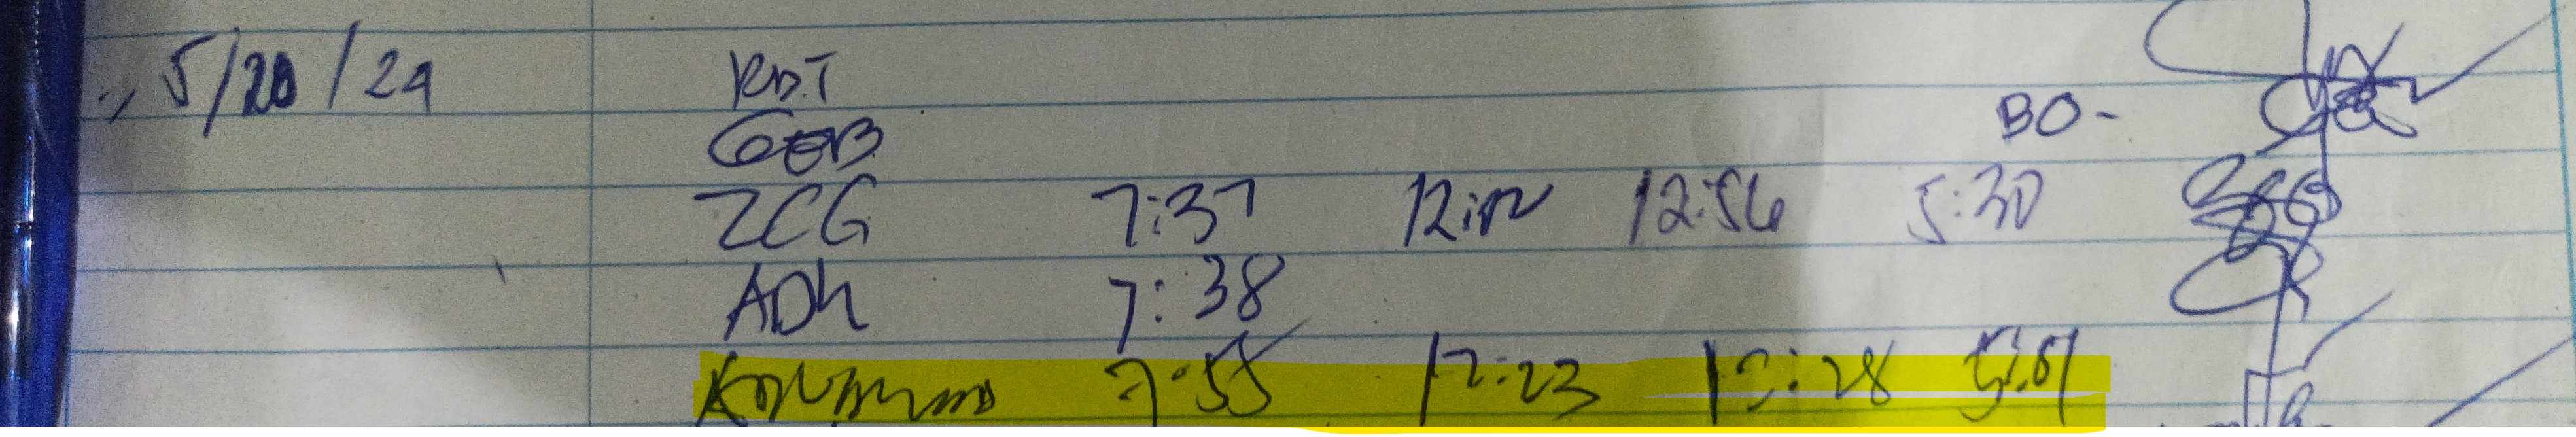 5/20/24 RDT
GEB BO-
ZCG 7:37 12:02 12:56 5:30
ADL 7:38
7:55 12:23 12:28 5:01